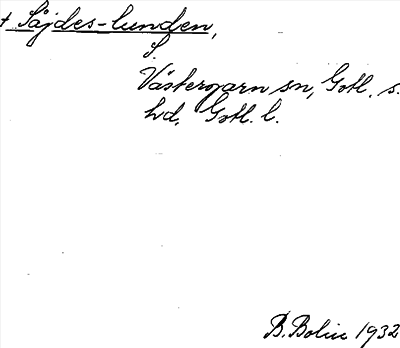 + Säjdes-lunden,
S.
Västergarn sn, Gotl. s.
hd, Gotl. l.
B. Bolin 1932